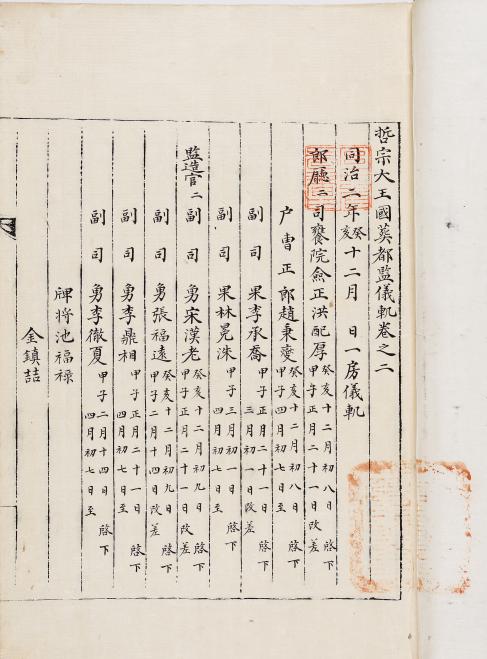 哲宗大王國葬都監儀軌卷之二
同治二年癸亥十二月 日一房儀軌
郎廳二 司饔院僉正洪配厚 癸亥十二月初八日 啓下 甲子正月二十一日改差
戶曹正郎趙秉燮 癸亥十二月初八日 啓下 甲子四月初七日至
副司果李承喬 甲子正月二十一日 啓下 三月初一日改差
副司果林晃洙 甲子三月初一日 啓下 四月初七日至
監造官二 副司勇宋漢老 癸亥十二月初九日 啓下 甲子正月二十一日改差
副司勇張福遠 癸亥十二月初九日 啓下 甲子二月十四日改差
副司勇李鼎相 甲子正月二十一日 啓下 四月初七日至
副司勇李徹夏 甲子二月十四日 啓下 四月初七日至
牌將池福祿
金鎮喆